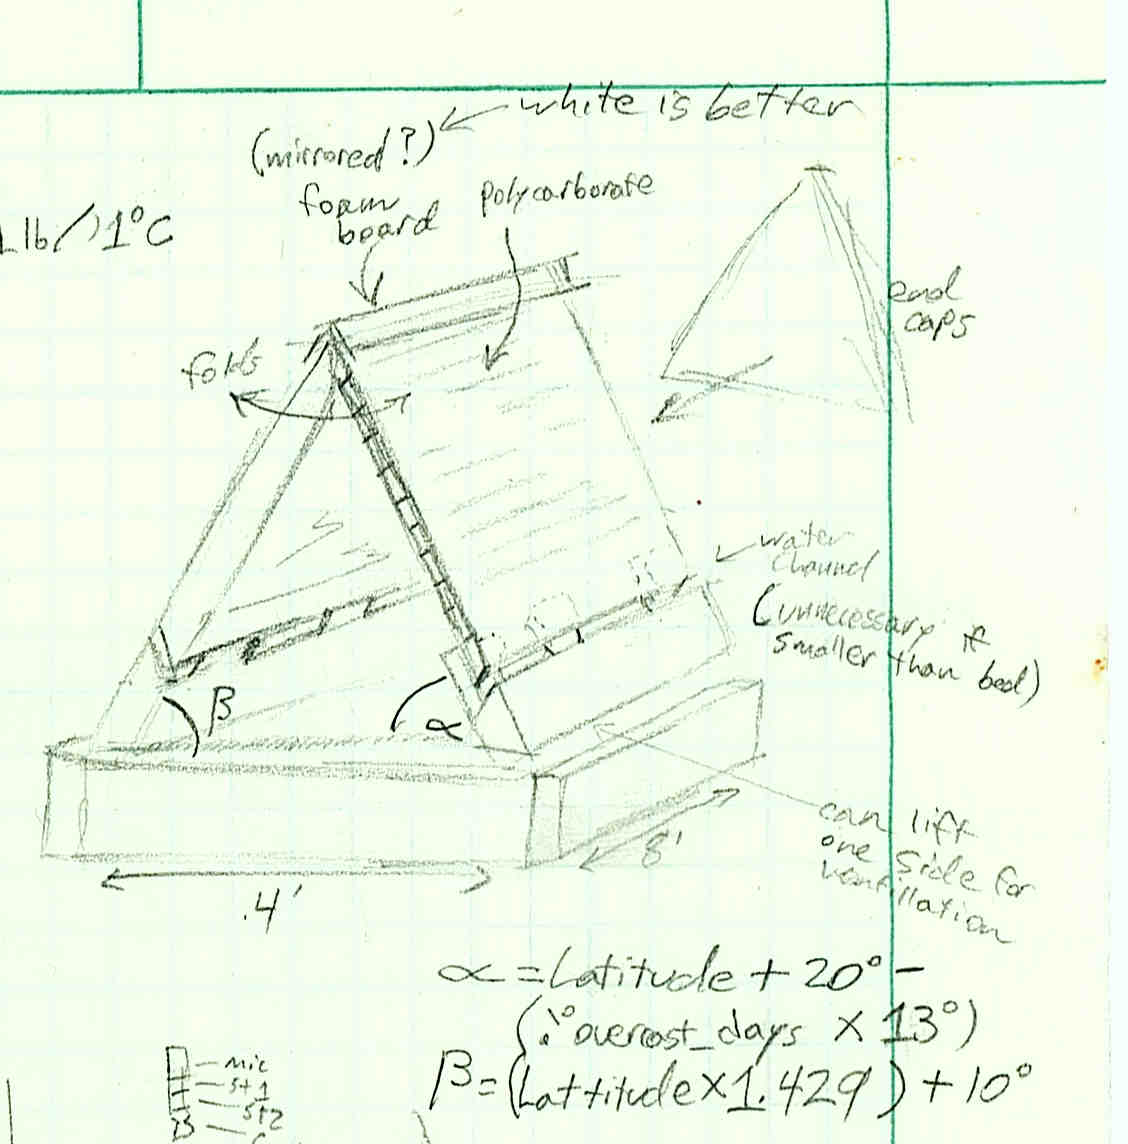 white is better
(mirrored?)
foam
board
polycarborate
Llb/)1°C
end
caps
folds
water
channel
(unnecessary if
smaller than bed)
β
α
can lift
one side for
ventillation
8'
4'
α = Latitude + 20° -
(%overcast_days X 13°)
β = (Lattitude X 1.429) + 10°
mic
st1
st2